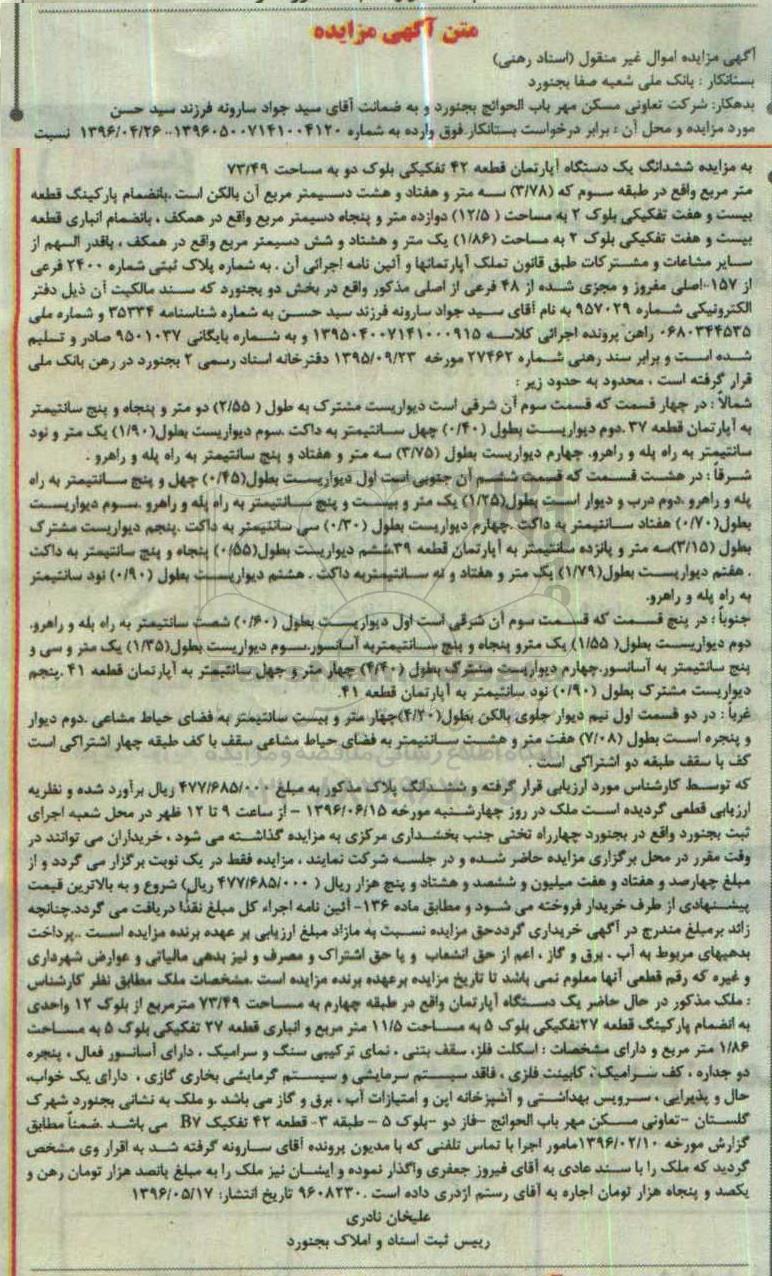 متن آگهی مزایده
آگهی مزایده اموال غیر منقول (اسناد رهنی)
بستانکار : بانک ملی شعبه صفا بجنورد
بدهکار: شرکت تعاونی مسکن مهر باب الحوائج بجنورد و به ضمانت آقای سید جواد سارونه فرزند سید حسن
مورد مزایده و محل آن : برابر درخواست بستانکار فوق وارده به شماره ۱۳۹۶۰۵۰۰۷۱۴۱۰۰۴۱۲۰-۱۳۹۶/۰۴/۲۶ نسبت
به مزایده ششدانگ یک دستگاه آپارتمان قطعه ۴۲ تفکیکی بلوک دو به مساحت ۷۳/۴۹
متر مربع واقع در طبقه سوم که (۳/۷۸) سه متر و هفتاد و هشت دسیمتر مربع آن بالکن است .بانضمام پارکینگ قطعه
بیست و هفت تفکیکی بلوک ۲ به مساحت ( ۱۲/۵) دوازده متر و پنجاه دسیمتر مربع واقع در همکف ، بانضمام انباری قطعه
بیست و هفت تفکیکی بلوک ۲ به مساحت (۱/۸۶) یک متر و هشتاد و شش دسیمتر مربع واقع در همکف ، باقدر السهم از
سایر مشاعات و مشترکات طبق قانون تملک آپارتمانها و آئین نامه اجرائی آن . به شماره پلاک ثبتی شماره ۲۴۰۰ فرعی
از ۱۵۷-اصلی مفروز و مجزی شده از ۴۸ فرعی از اصلی مذکور واقع در بخش دو بجنورد که سند مالکیت آن ذیل دفتر
الکترونیکی شماره ۹۵۷۰۲۹ به نام آقای سید جواد سارونه فرزند سید حسن به شماره شناسنامه ۳۵۳۳۴ و شماره ملی
۰۶۸۰۳۴۴۵۳۵ راهن پرونده اجرائی کلاسه ۱۳۹۵۰۴۰۰۷۱۴۱۰۰۰۹۱۵ و به شماره بایگانی ۹۵۰۱۰۳۷ صادر و تسلیم
شده است و برابر سند رهنی شماره ۲۷۴۶۲ مورخه ۱۳۹۵/۰۹/۲۳ دفترخانه اسناد رسمی ۲ بجنورد در رهن بانک ملی
قرار گرفته است ، محدود به حدود زیر :
شمالاً : در چهار قسمت که قسمت سوم آن شرقی است دیواریست مشترک به طول ( ۲/۵۵) دو متر و پنجاه و پنج سانتیمتر
به آپارتمان قطعه ۳۷ .دوم دیواریست بطول (۰/۴۰) چهل سانتیمتر به داکت .سوم دیواریست بطول(۱/۹۰) یک متر و نود
سانتیمتر به راه پله و راهرو. چهارم دیواریست بطول (۳/۷۵) سه متر و هفتاد و پنج سانتیمتر به راه پله و راهرو .
شرقاً : در هشت قسمت که قسمت ششم آن جنوبی است اول دیواریست بطول(۰/۴۵) چهل و پنج سانتیمتر به راه
پله و راهرو .دوم درب و دیوار است بطول(۱/۲۵) یک متر و بیست و پنج سانتیمتر به راه پله و راهرو .سوم دیواریست
بطول(۰/۷۰) هفتاد سانتیمتر به داکت .چهارم دیواریست بطول (۰/۳۰) سی سانتیمتر به داکت .پنجم دیواریست مشترک
بطول (۳/۱۵)سه متر و پانزده سانتیمتر به آپارتمان قطعه ۳۹.ششم دیواریست بطول(۰/۵۵) پنجاه و پنج سانتیمتر به داکت
. هفتم دیواریست بطول(۱/۷۹) یک متر و هفتاد و نه سانتیمتربه داکت . هشتم دیواریست بطول (۰/۹۰) نود سانتیمتر
به راه پله و راهرو.
جنوباً : در پنج قسمت که قسمت سوم آن شرقی است اول دیواریست بطول (۰/۶۰) شصت سانتیمتر به راه پله و راهرو.
دوم دیواریست بطول( ۱/۵۵) یک مترو پنجاه و پنج سانتیمتربه آسانسور.سوم دیواریست بطول(۱/۳۵) یک متر و سی و
پنج سانتیمتر به آسانسور.چهارم دیواریست مشترک بطول (۴/۴۰) چهار متر و چهل سانتیمتر به آپارتمان قطعه ۴۱ .پنجم
دیواریست مشترک بطول (۰/۹۰) نود سانتیمتر به آپارتمان قطعه ۴۱.
غرباً : در دو قسمت اول نیم دیوار جلوی بالکن بطول(۴/۲۰)چهار متر و بیست سانتیمتر به فضای حیاط مشاعی .دوم دیوار
و پنجره است بطول (۷/۰۸) هفت متر و هشت سانتیمتر به فضای حیاط مشاعی سقف با کف طبقه چهار اشتراکی است
کف با سقف طبقه دو اشتراکی است .
که توسط کارشناس مورد ارزیابی قرار گرفته و ششدانگ پلاک مذکور به مبلغ ۴۷۷/۶۸۵/۰۰۰ ریال برآورد شده و نظریه
ارزیابی قطعی گردیده است ملک در روز چهارشنبه مورخه ۱۳۹۶/۰۶/۱۵ - از ساعت ۹ تا ۱۲ ظهر در محل شعبه اجرای
ثبت بجنورد واقع در بجنورد چهارراه تختی جنب بخشداری مرکزی به مزایده گذاشته می شود ، خریداران می توانند در
وقت مقرر در محل برگزاری مزایده حاضر شده و در جلسه شرکت نمایند ، مزایده فقط در یک نوبت برگزار می گردد و از
مبلغ چهارصد و هفتاد و هفت میلیون و ششصد و هشتاد و پنج هزار ریال ( ۴۷۷/۶۸۵/۰۰۰ ریال) شروع و به بالاترین قیمت
پیشنهادی از طرف خریدار فروخته می شود و مطابق ماده ۱۳۶- آئین نامه اجراء کل مبلغ نقداً دریافت می گردد.چنانچه
زائد برمبلغ مندرج در آگهی خریداری گرددحق مزایده نسبت به مازاد مبلغ ارزیابی بر عهده برنده مزایده است ..پرداخت
بدهیهای مربوط به آب ، برق و گاز ، اعم از حق انشعاب و یا حق اشتراک و مصرف و نیز بدهی مالیاتی و عوارض شهرداری
و غیره که رقم قطعی آنها معلوم نمی باشد تا تاریخ مزایده برعهده برنده مزایده است .مشخصات ملک مطابق نظر کارشناس
: ملک مذکور در حال حاضر یک دستگاه آپارتمان واقع در طبقه چهارم به مساحت ۷۳/۴۹ مترمربع از بلوک ۱۲ واحدی
به انضمام پارکینگ قطعه ۲۷تفکیکی بلوک ۵ به مساحت ۱۱/۵ متر مربع و انباری قطعه ۲۷ تفکیکی بلوک ۵ به مساحت
۱/۸۶ متر مربع و دارای مشخصات : اسکلت فلز، سقف بتنی ، نمای ترکیبی سنگ و سرامیک ، دارای آسانسور فعال ، پنجره
دو جداره ، کف سرامیک، کابینت فلزی ، فاقد سیستم سرمایشی و سیستم گرمایشی بخاری گازی ، دارای یک خواب،
حال و پذیرایی ، سرویس بهداشتی و آشپزخانه اپن و امتیازات آب ، برق و گاز می باشد .و ملک به نشانی بجنورد شهرک
گلستان -تعاونی مسکن مهر باب الحوائج -فاز دو -بلوک ۵ - طبقه ۳- قطعه ۴۲ تفکیک B۷ می باشد .ضمناً مطابق
گزارش مورخه ۱۳۹۶/۰۲/۱۰مامور اجرا با تماس تلفنی که با مدیون پرونده آقای سارونه گرفته شد به اقرار وی مشخص
گردید که ملک را با سند عادی به آقای فیروز جعفری واگذار نموده و ایشان نیز ملک را به مبلغ پانصد هزار تومان رهن و
یکصد و پنجاه هزار تومان اجاره به آقای رستم اژدری داده است .۹۶۰۸۲۳۰ تاریخ انتشار: ۱۳۹۶/۰۵/۱۷
علیخان نادری
رییس ثبت اسناد و املاک بجنورد